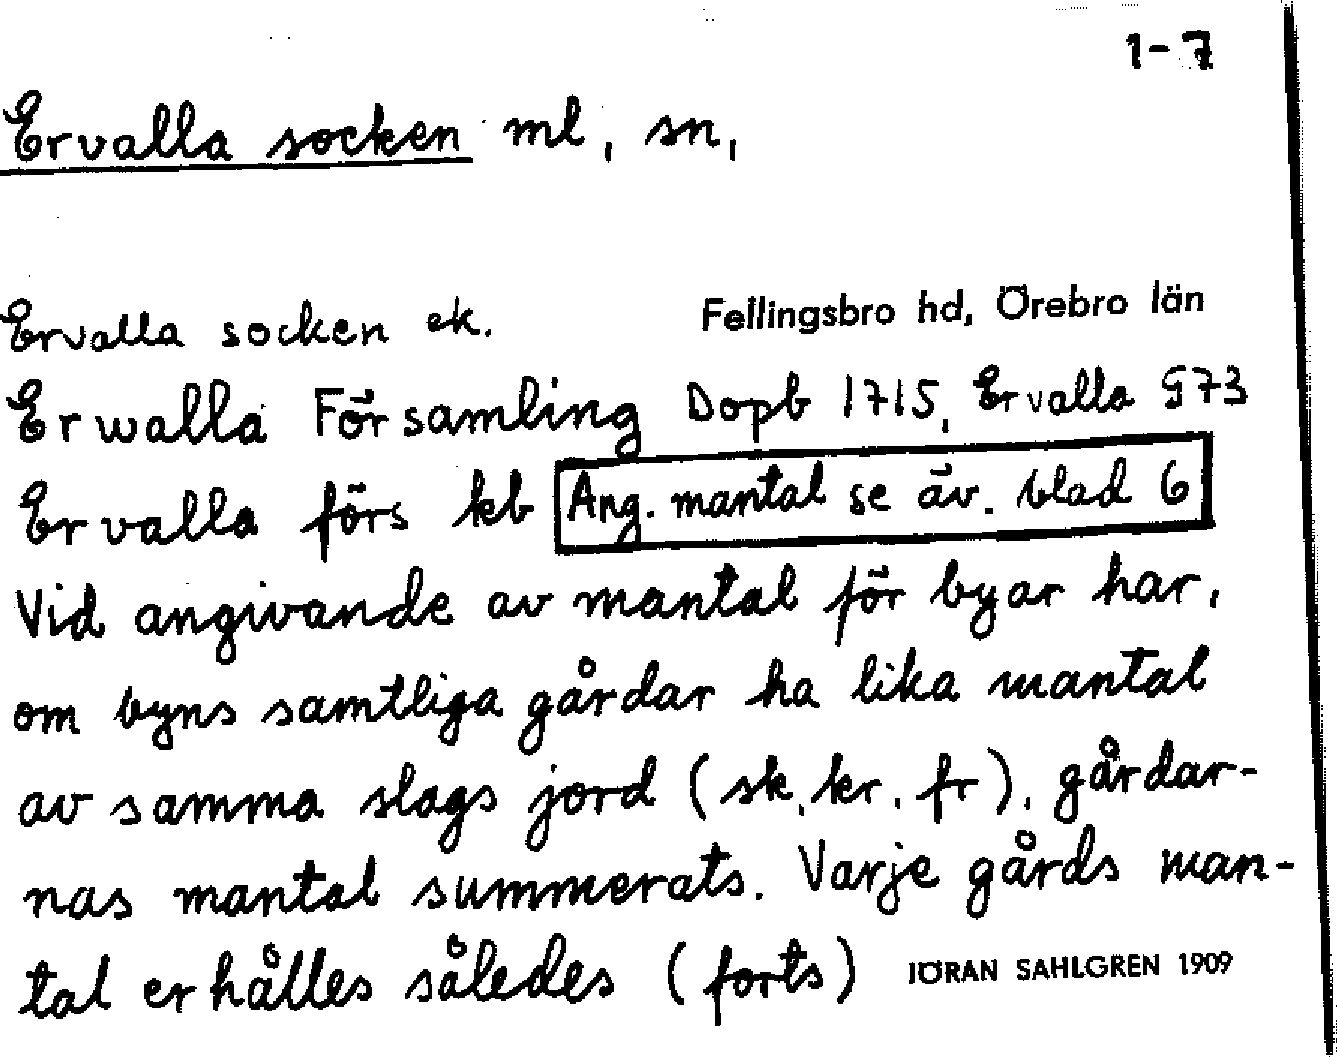 1-7
Ervalla socken ml, sn,
Ervalla socken ek. Fellingsbro hd, Örebro län
Erwalla Församling Dopb 1715, Ervalla G73
Ervalla förs kb Ang. mantal se äv. blad 6
Vid angivande av mantal för byar har,
om byns samtliga gårdar ha lika mantal
av samma slags jord (sk, kr, fr), gårdar-
nas mantal summerats. Varje gårds man-
tal erhålles således (forts) JÖRAN SAHLGREN 1909